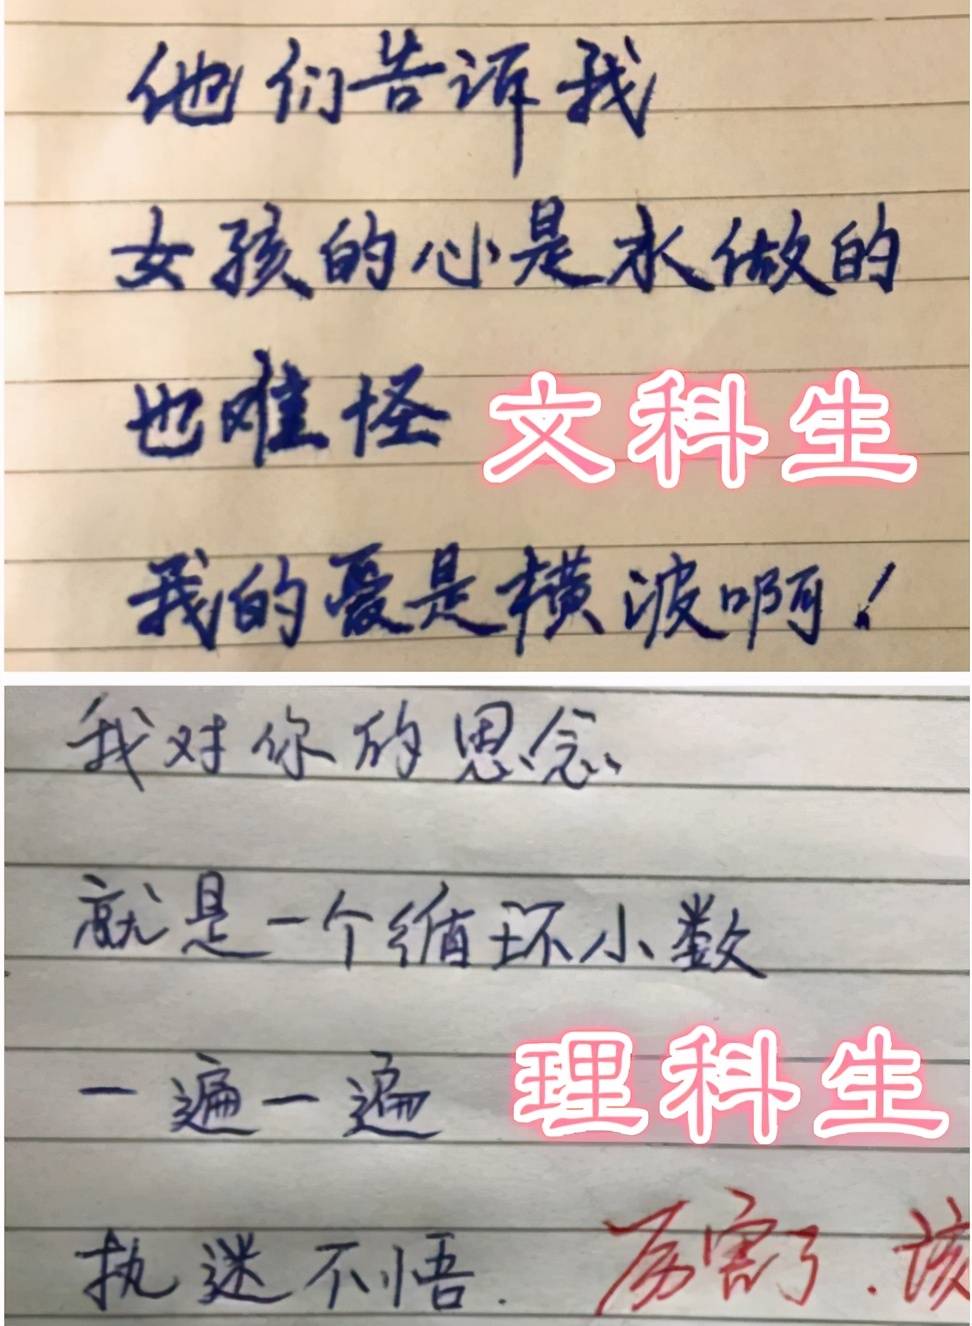 他们告诉我
女孩的心是水做的
也难怪 文科生
我的爱是横波啊！
我对你的思念
就是一个循环小数
一遍一遍 理科生
执迷不悟. 厉害了.该